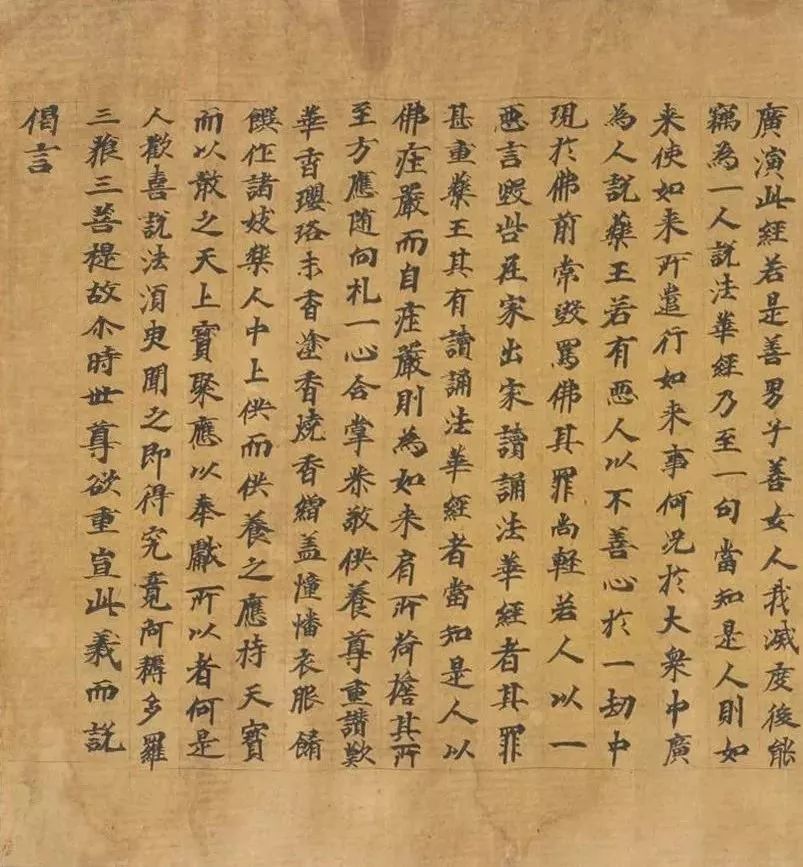 廣演此經若是善男子善女人我滅度後能
竊為一人說法華經乃至一句當知是人則如
来使如来所遣行如来事何況於大衆中廣
為人說藥王若有惡人以不善心於一劫中
現於佛前常毀罵佛其罪尚輕若人以一
惡言毀呰在家出家讀誦法華經者其罪
甚重藥王其有讀誦法華經者當知是人以
佛莊嚴而自莊嚴則為如来肩所荷擔其所
至方應随向礼一心合掌恭敬供養尊重讃歎
華香瓔珞末香塗香燒香繒盖幢幡衣服餚
饌作諸妓樂人中上供而供養之應持天寶
而以散之天上寶聚應以奉獻所以者何是
人歡喜說法須臾聞之即得究竟阿耨多羅
三藐三菩提故尒時世尊欲重宣此義而說
偈言